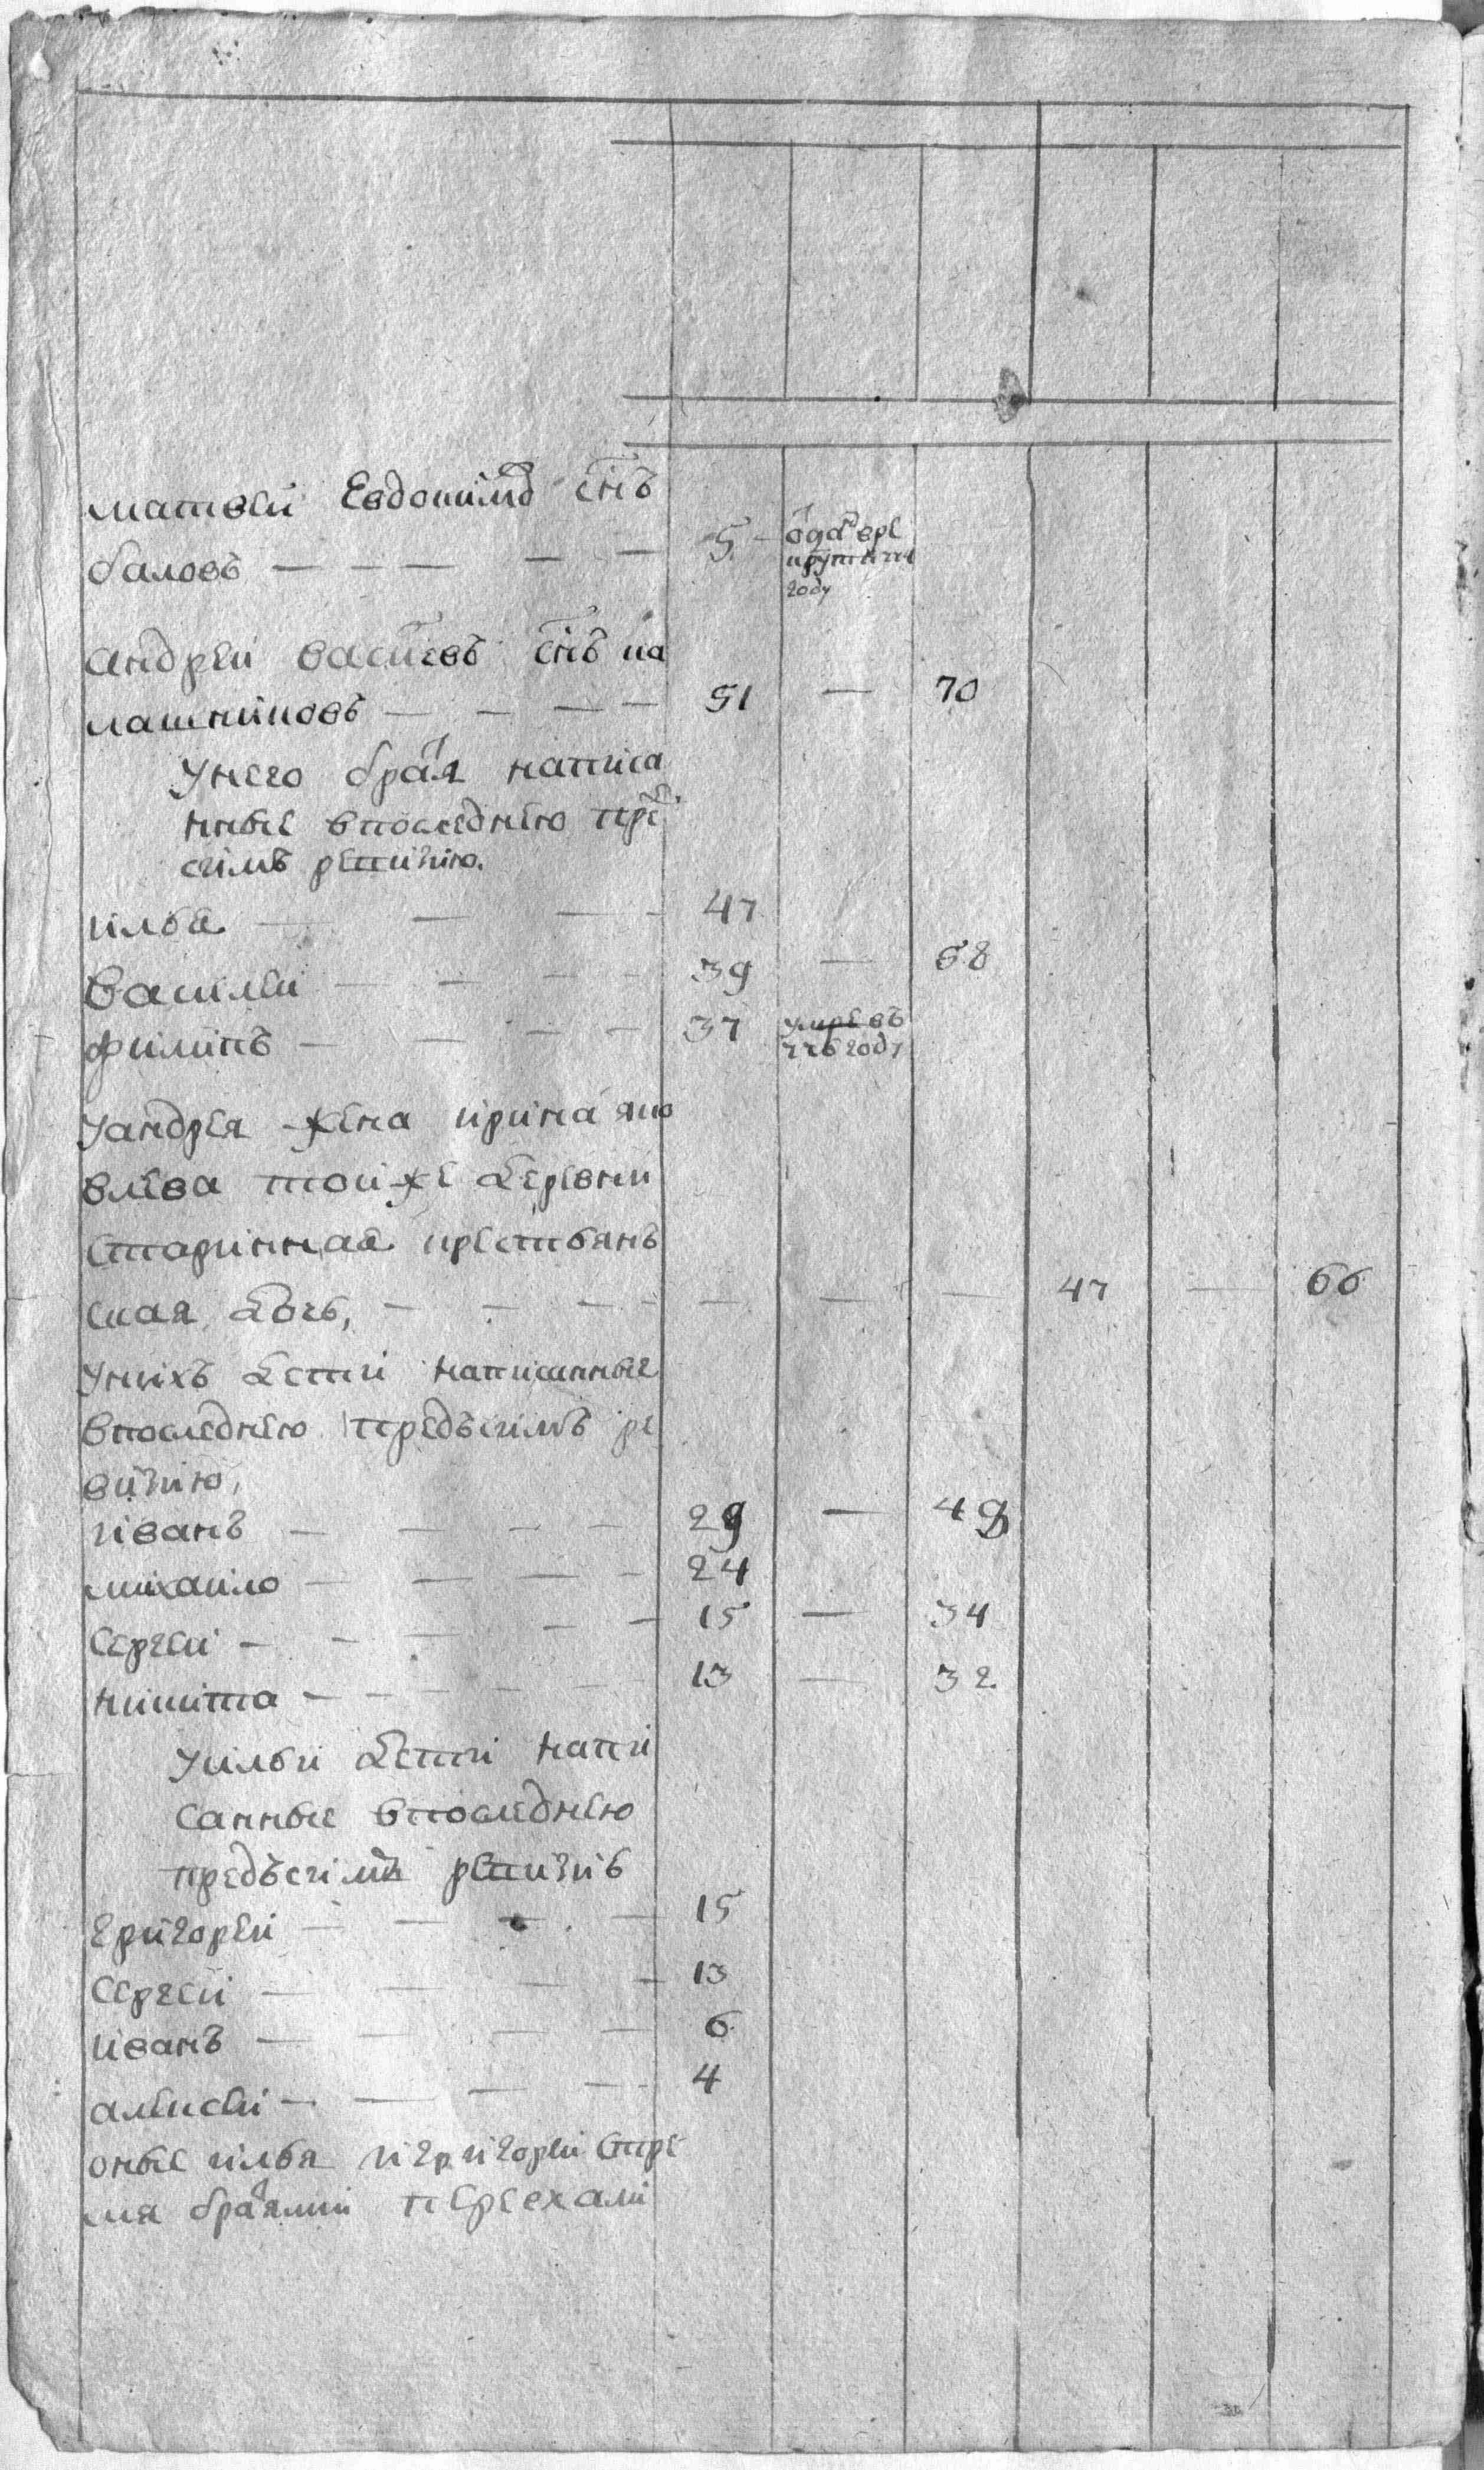 матвеи Евдокимъ снъ
баловъ — — — — — 5 — одан вре
круты
году
андреи василевъ снъ ка
лашниковъ — — — — 51 — 70
Унего братя написа
нные впоследнею пре
симъ ревизию.
илья — — — — 47
василеи — — — — 39 — 58
филипъ — — — — 37 умре въ
году
Уандрея жена ирина яко
влева тои же деревни
старинная крестьянъ
ская дочь, — — — — — — — 47 — 66
Унихъ дети написанные
впоследнею предъсимъ ре
визию,
иванъ — — — — 29 — 48
михаило — — — — 24
сергеи — — — — — 15 — 34
никита — — — — — 13 — 32
Уильи дети напи
санные впоследнею
предъсимъ ревизию
григореи — — — — 15
сергеи — — — — 13
иванъ — — — — 6
алексеи — — — — 4
оные илья и григореи стре
мя братями переехали